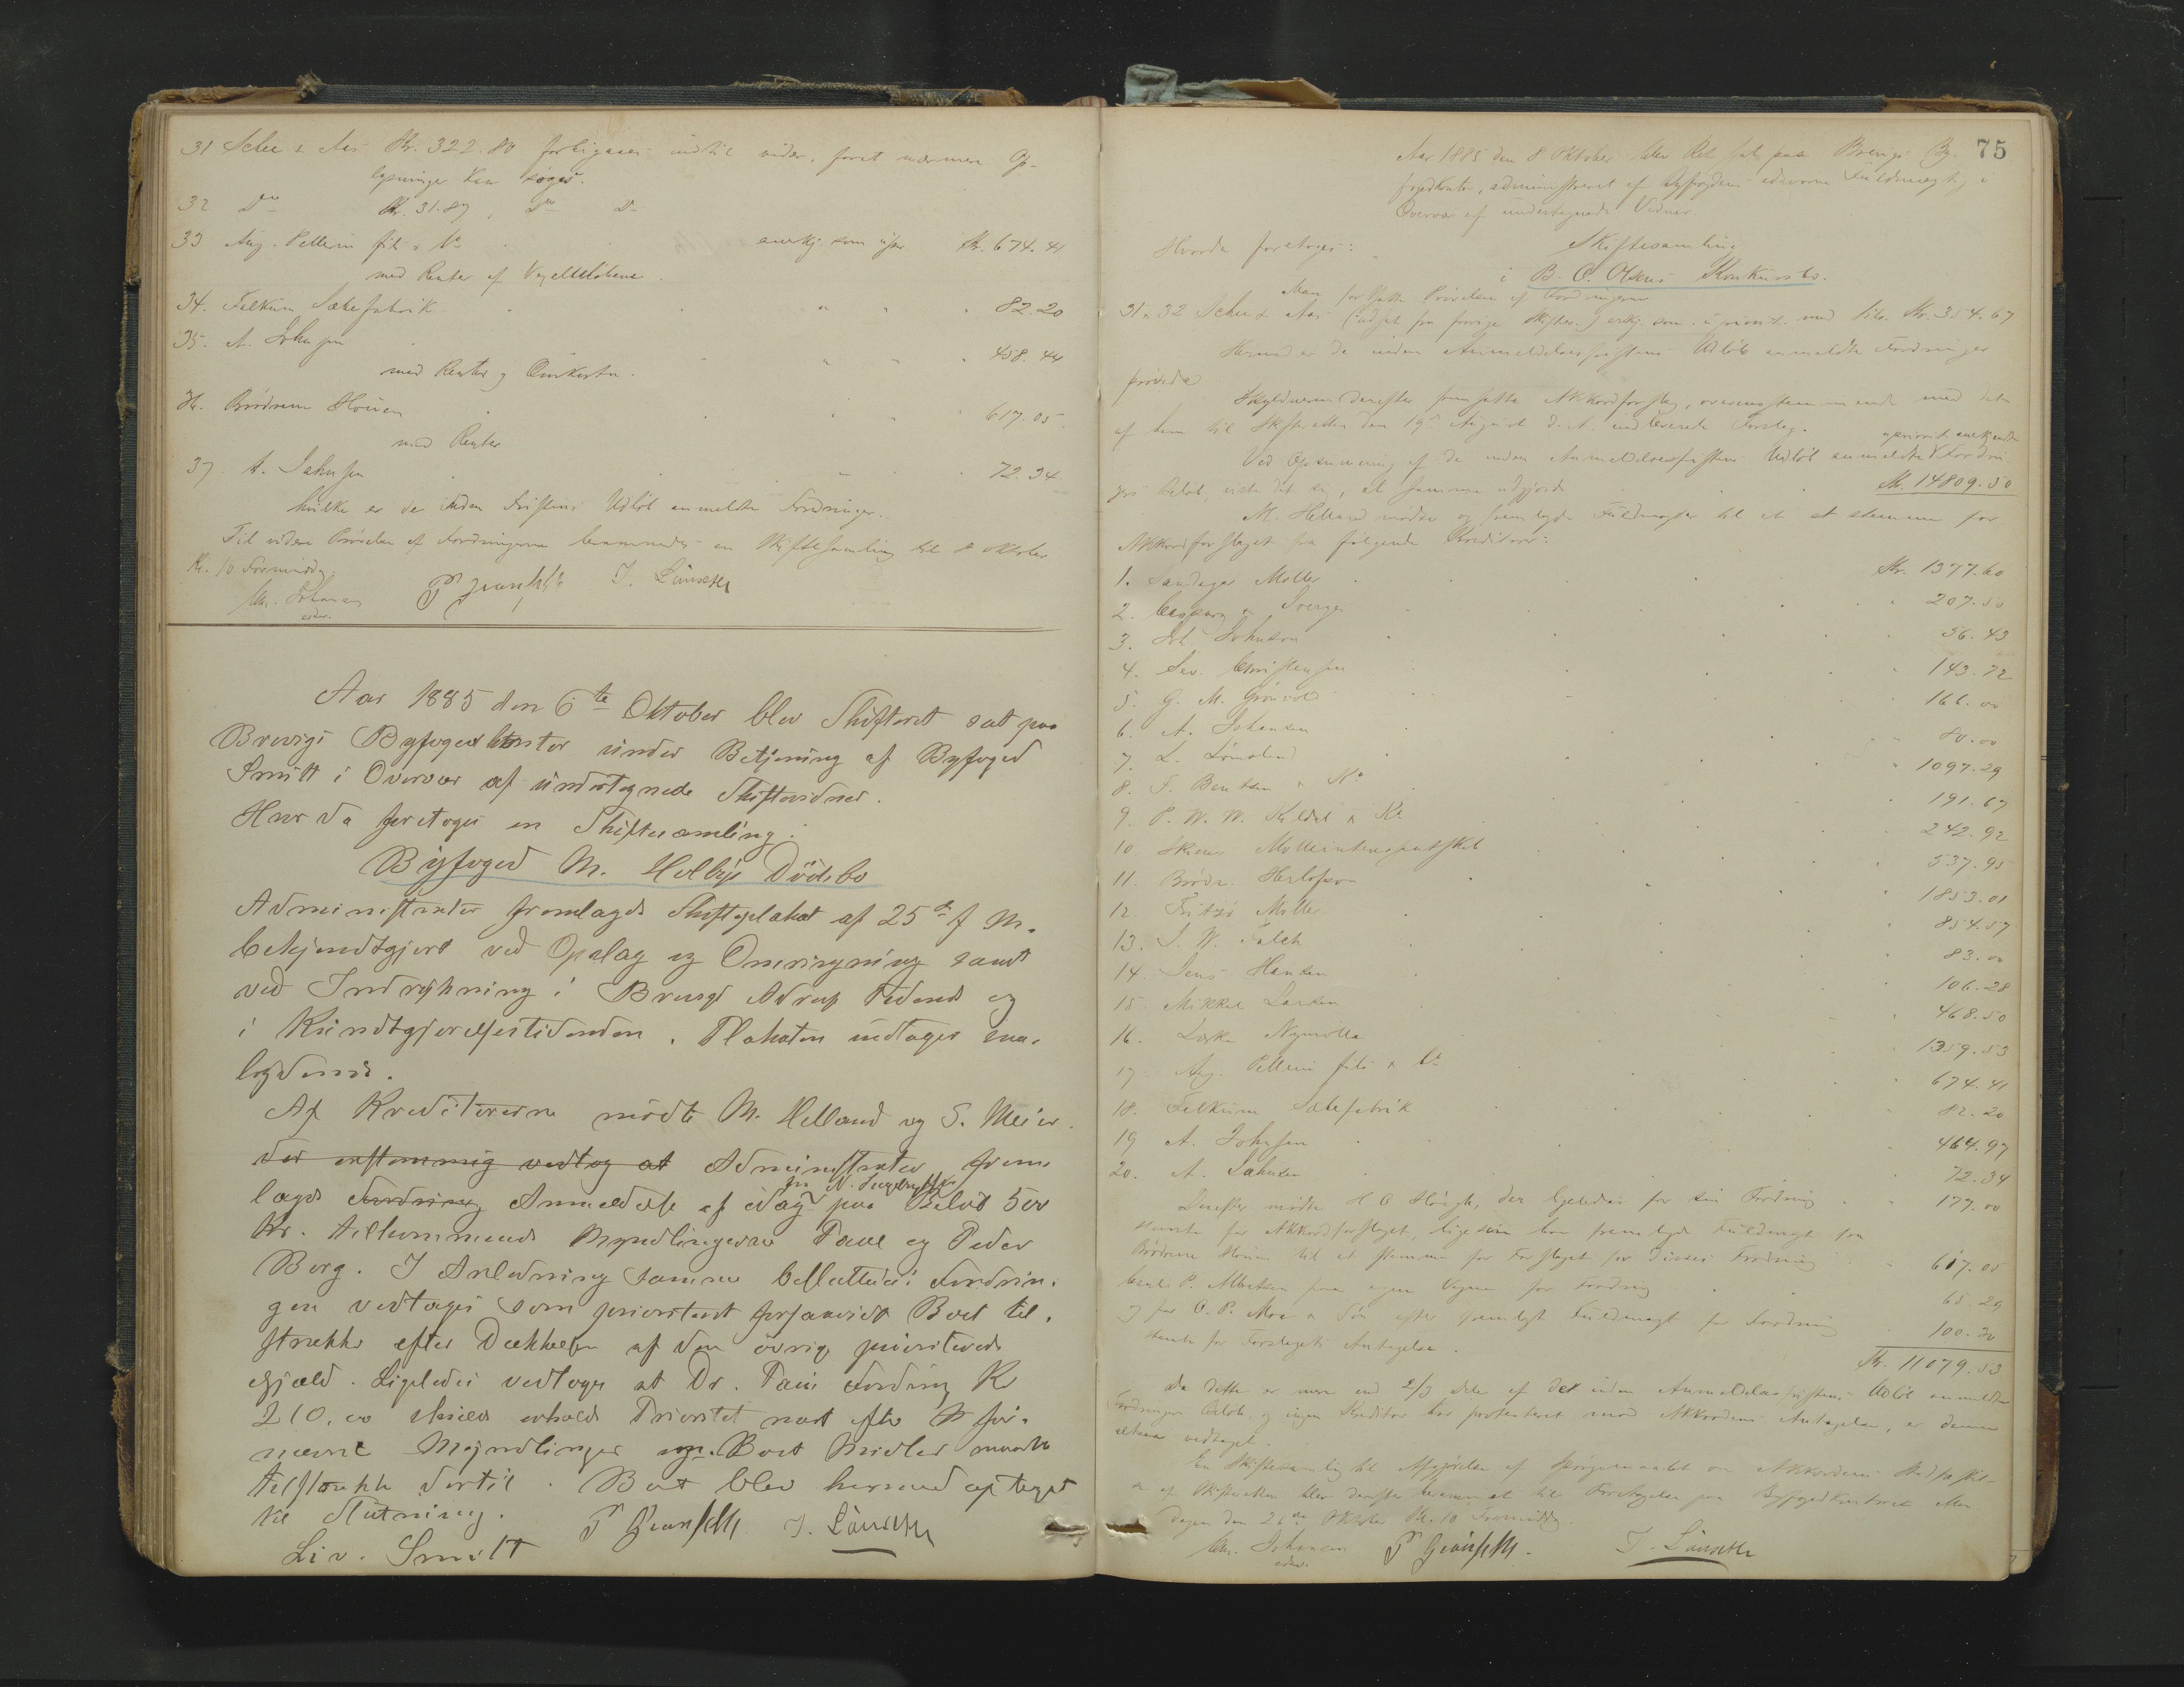 31 Schee & Aas Kr. 322.80 forligaaes indtil videre, foret nærmere Op-
lysninger kan söges.
32 Do Kr. 31.87, Do Do
33 Aug. Pellerin fils & Co anerkj. som uprior. Kr. 674.41
med Renter af Vexelbelöbene.
34. Felkum Sæbefabrik " " " 82.20
35. A. Johnsen " " " 458.44
med Renter og Omkostn.
36. Brödrene Houen " " " 617.05
med Renter
37. A. Jahnsen " " 72.34.
hvilke er de inden Fristens Udlöb anmeldte Fordringer.
Til videre Prövelse af Fordringerne berammedes en Skiftesamling til 8 Oktober
Kl. 10 Formiddag.
Chr. Johansen P. J. Lünseth
edsv.
Aar 1885 den 6te Oktober blev Skifteret sat paa
Brevigs Byfogedkontor under Betjening af Byfoged
Smitt i Overvær af undertegnede Skiftevidner.
Hvor da foretoges en Skiftesamling i
Byfoged M. Helbys Dödsbo
Administrator fremlagde Skifteplakat af 25de f. M.
bekjendtgjort ved Opslag og Omringning samt
ved Indrykning i Brevigs Adresse Tidende og
i Kundtgjørelsestidenden. Plakaten indtages saa-
lydende.
Af Kreditorerne mödte M. Helland og S. Meier.
der enstemmig vedtog at Administrator frem-
fra N.
lagde Fordring Anmeldelse af idag paa Belöb 500
Kr. tilkommende Myndlingerne Paul og Peder
Borg. I Anledning samme besluttedes: Fordrin-
gen vedtoges som prioriteret forsaavidt Boet til-
strækker efter Dækkelsen af den övrige prioriterede
Gjæld. Ligeledes vedtoges at Dr. Paus Fordring Kr
210,00 skulde erholde Prioritet næst efter for-
nævnte Myndlinger om Boets Midler maatte
tilstrække dertil. Boet blev hermed optaget
til Slutning.
Liv. Smitt P. J. Lünseth
75
Aar 1885 den 8 Oktober blev Ret sat paa Brevigs By-
fogedkontor, administreret af Byfogdens edsvorne Fuldmægtig i
Overvær af undertegnede Vidner.
Hvorda foretoges: Skiftesamling
i B. C. Olsens Konkursbo.
Man fortsatte Prövelsen af Fordringerne
31 & 32 Schee & Aas (udsat fra forrige Skiftes.) erkj. som uprivit. med tils. Kr. 354.67
Hermed er de inden Anmeldelsesfristens Udlöb anmeldte Fordringer
prövede
Skyldneren derefter fremsatte Akkordforslag, overensstemmende med det
af ham til Skifteretten den 19de August d. A. indleverede Forslag.
uprioriterede anerkjendte
Ved Opsummering af de inden Anmeldelsesfristens Udlöb anmeldte Fordrin-
gers Belöb, viste det sig, at samme udgjorde Kr. 14809.50
M. Helland mödte og fremlagde Fuldmagter til at stemme for
Akkordforslaget fra fölgende Kreditorer:
1. Sandager Mölle Kr. 1377.60
2. Caspary & 207.50
3. Johnson 56.43
4. Sev. Christensen 143.72
5. G. M. Grönvold 166.00
6. A. Johansen 80.00
7. L. 1097.29
8. F. Bentsen & Ko 191.67
9. P. W. W. Kildal & Ko 242.92
10 Skiens Mölleinteressentskab 537.95
11. Brödr. Herlofson 1853.01
12. Fritzö Mölle 854.57
13. S. W. Falck 83.00
14. Jens Hansen 106.28
15. Mikkel Larsen 468.50
16. Nymölle 1359.53
17 Aug. Pellerin fils & Co 674.41
18. Felkum Sæbefabrik 82.20
19 A. Johnsen 464.97
20. A. Jahnsen 72.34
Derefter mödte H C Höegh, der ligeledes for sin Fordring 177.00
stemte for Akkordforslaget, ligesom han fremlagde Fuldmagt fra
Brödrene Houen til at stemme for Forslaget for disses Fordring 617.05
P. Albretsen paa egne Vegne for Fordring 65 29
og for O. P. Moe & Sön efter fremlagt Fuldmagt for Fordring 100.30
stemte for Forslagets Antagelse.
Kr. 11079.53
Da dette er mere end 2/3 Dele af det inden Anmeldelsesfristens Udlöb anmeldte
Fordringers Belöb, og ingen Kreditor har protesteret mod Akkordens Antagelse, er denne
altsaa vedtaget.
En Skiftesamling til Afgjörelse af Spörgsmaalet om Akkordens Stadfæstel-
se af Skifteretten blev derefter berammet til Foretagelse paa Byfogedkontoret Man-
dagen den 26de Oktober Kl. 10 Formiddag.
Chr. Johansen P. J. Lünseth
edsv.